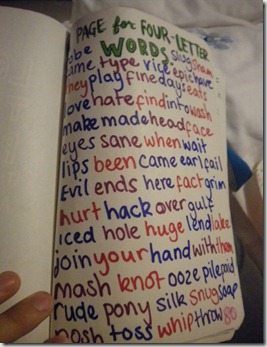 PAGE for FOUR-LETTER
WORDS slug
type rice epic have
they play fine days eats
love hate find into wash
make made head face
eyes sane when wait
lips been came earl fail
Evil ends here fact grim
hurt hack over gulf
iced hole huge lend lake
join your hand with them
mash knot ooze pile paid
rude pony silk snug soap
posh toss whip throw 80